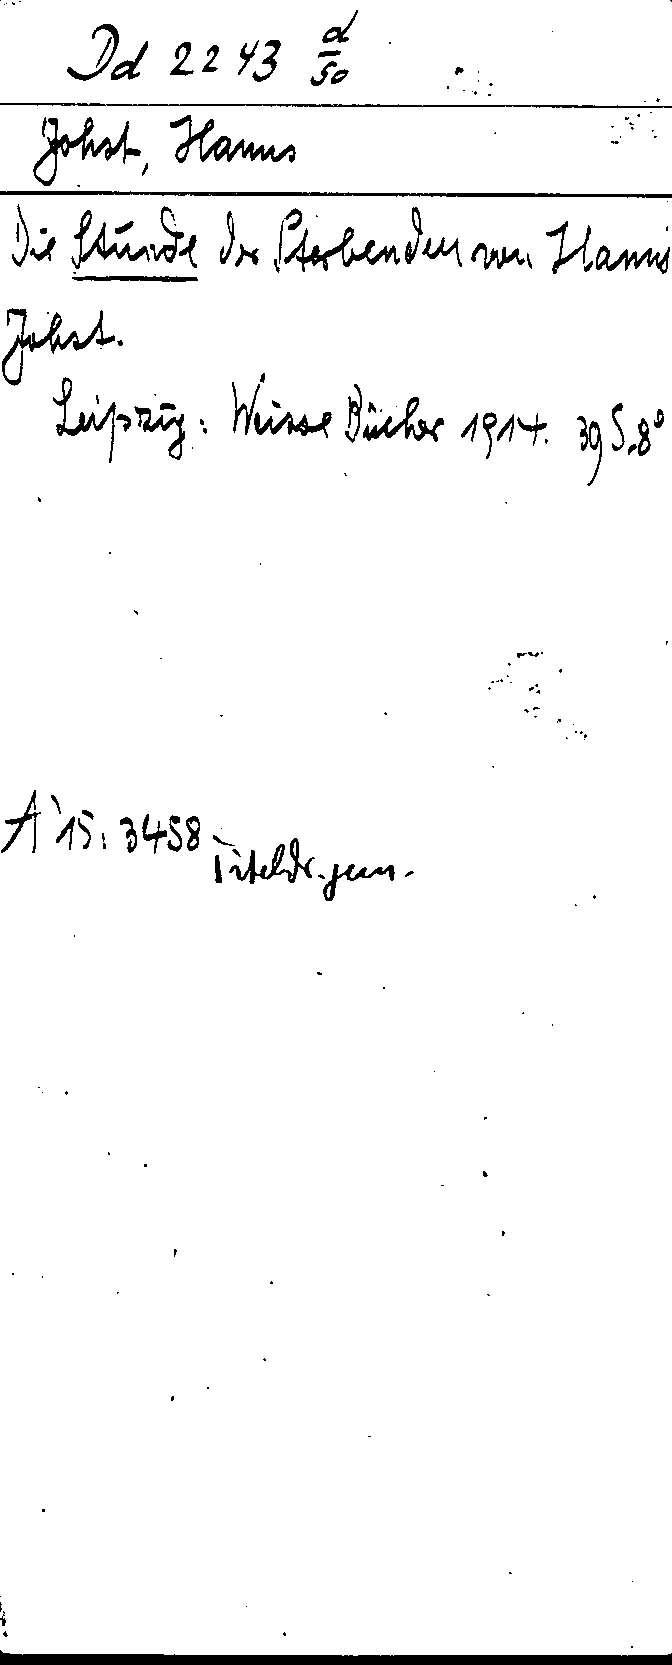 Dd 2243 d/50
Johst, Hanns
Die Stunde der Sterbenden von Hanns
Johst.
Leipzig: Weisse Bücher 1914. 39 S. 8°
A'15: 3458
Titeldr. gem.